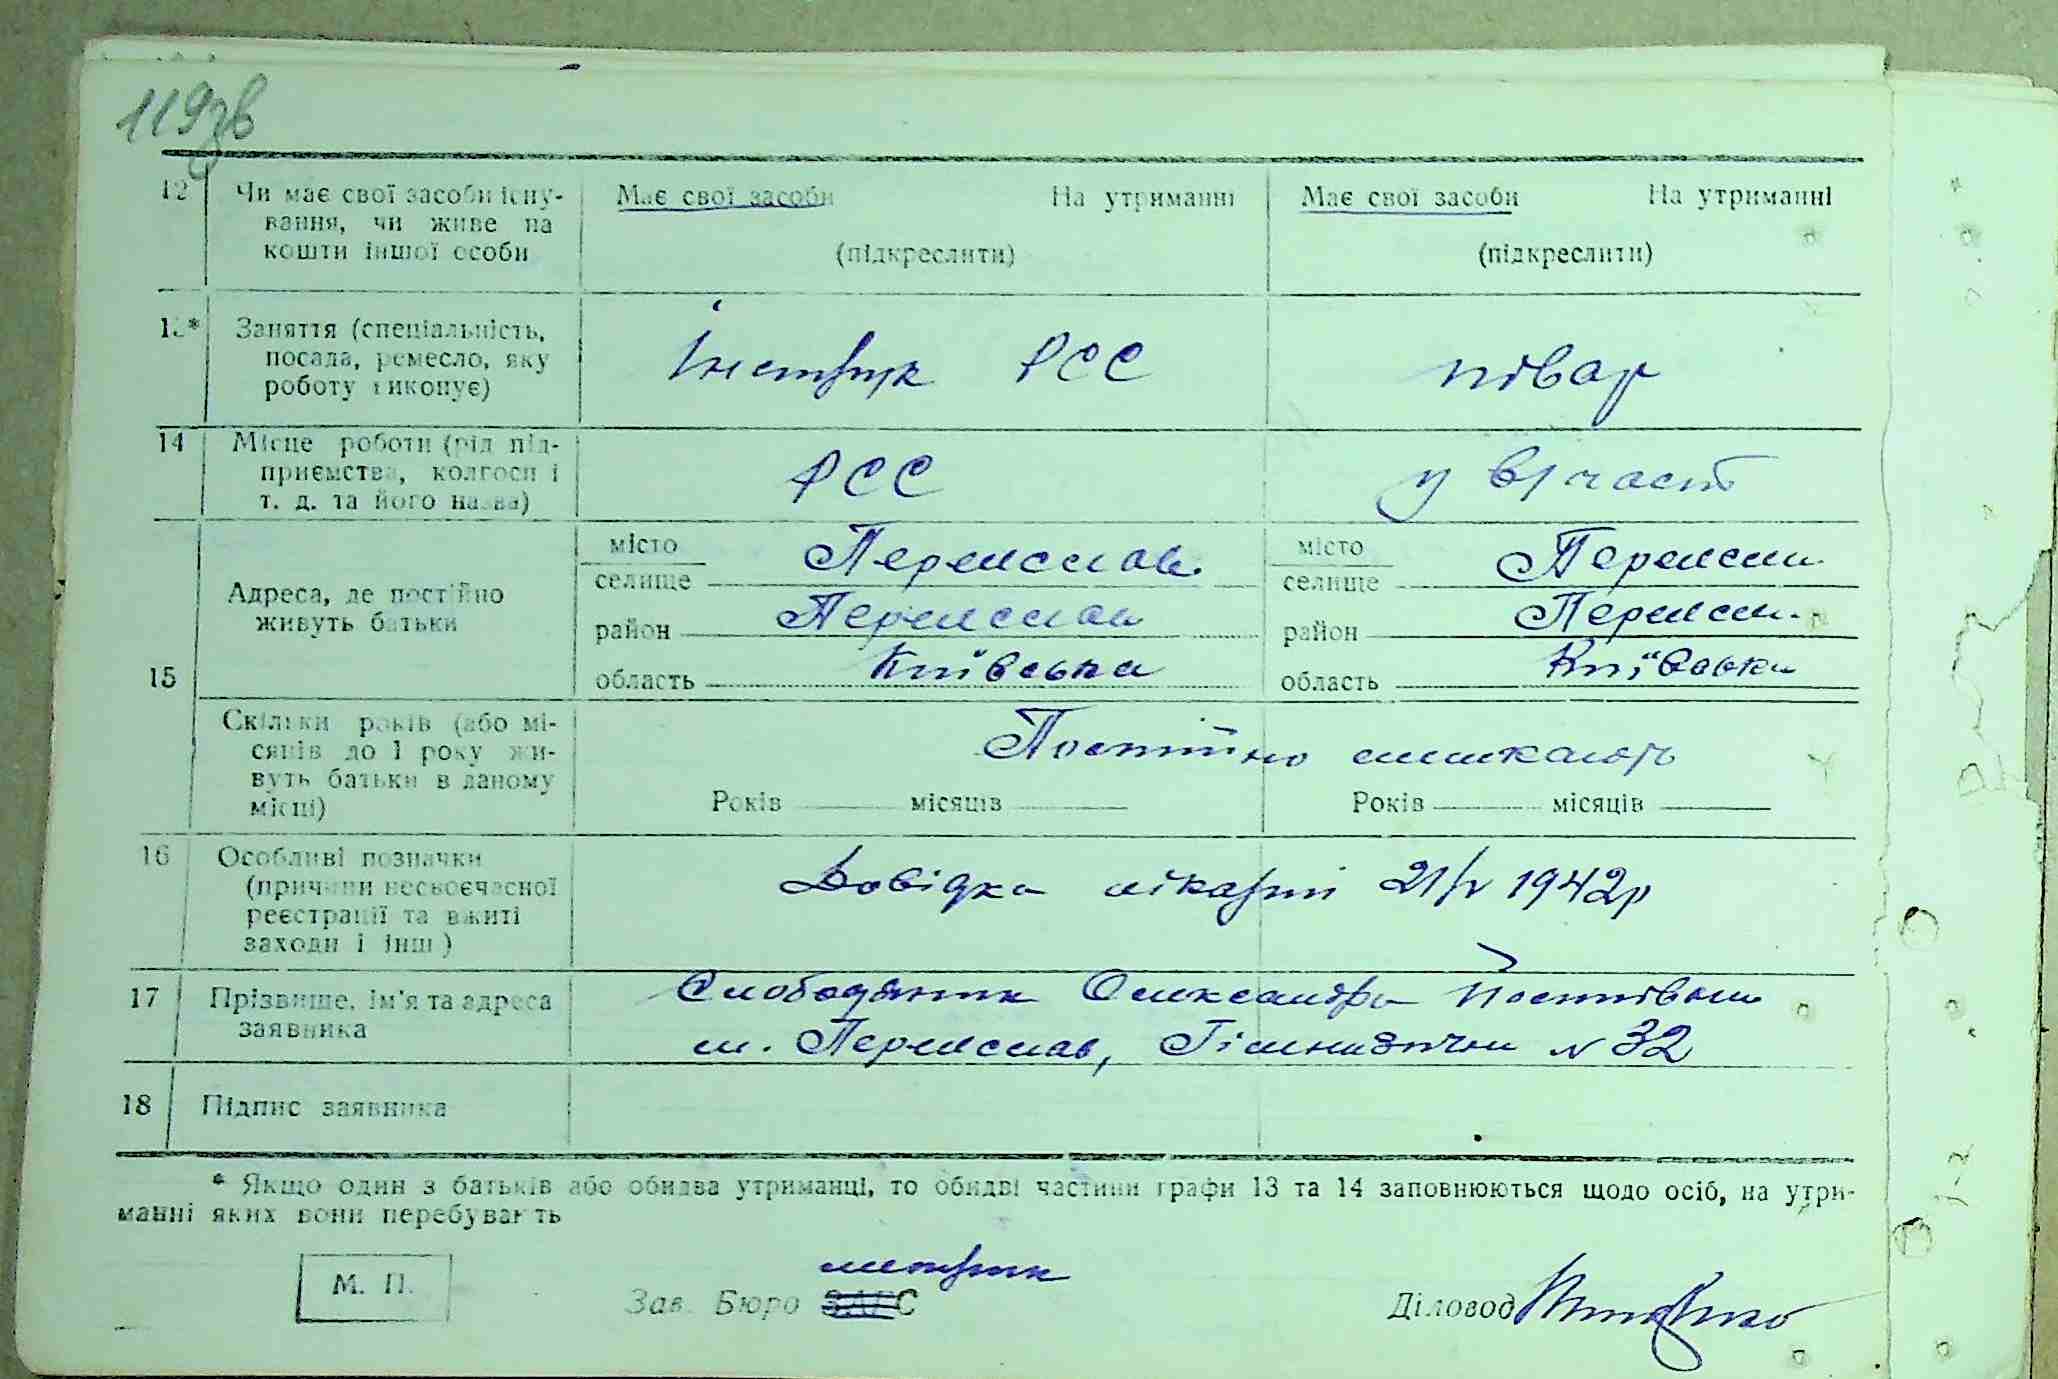 119зв
12 Чи має свої засоби існу- Має свої засоби На утриманні Має свої засоби На утриманні
вання, чи живе на
кошти іншої особи (підкреслити) (підкреслити)
13* Заняття (спеціальність,
посада, ремесло, яку Інструк РСС повар
роботу виконує)
14 Місце роботи (рід під-
приємства, колгосп і РСС у в/част
т. д. та його назва)
місто Переяслав місто Переясл.
селище селище
Адреса, де постійно
живуть батьки
район Переяслав район Переясл.
15
область Київська область Київська
Скільки років (або мі-
сяців до 1 року жи- Постійно мешкають
вуть батьки в даному
місці) Років місяців Років місяців
16 Особливі позначки
(причини несвоєчасної Довідка лікарні 21/V 1942р
реєстрації та вжиті
заходи і інш)
17 Прізвище, ім'я та адреса Слободяник Олександра
заявника м. Переяслав, Гімназична № 32
18 Підпис заявника
* Якщо один з батьків або обидва утриманці, то обидві частини графи 13 та 14 заповнюються щодо осіб, на утри-
манні яких вони перебувають
метрик
М. П. Зав. Бюро ЗАГС Діловод